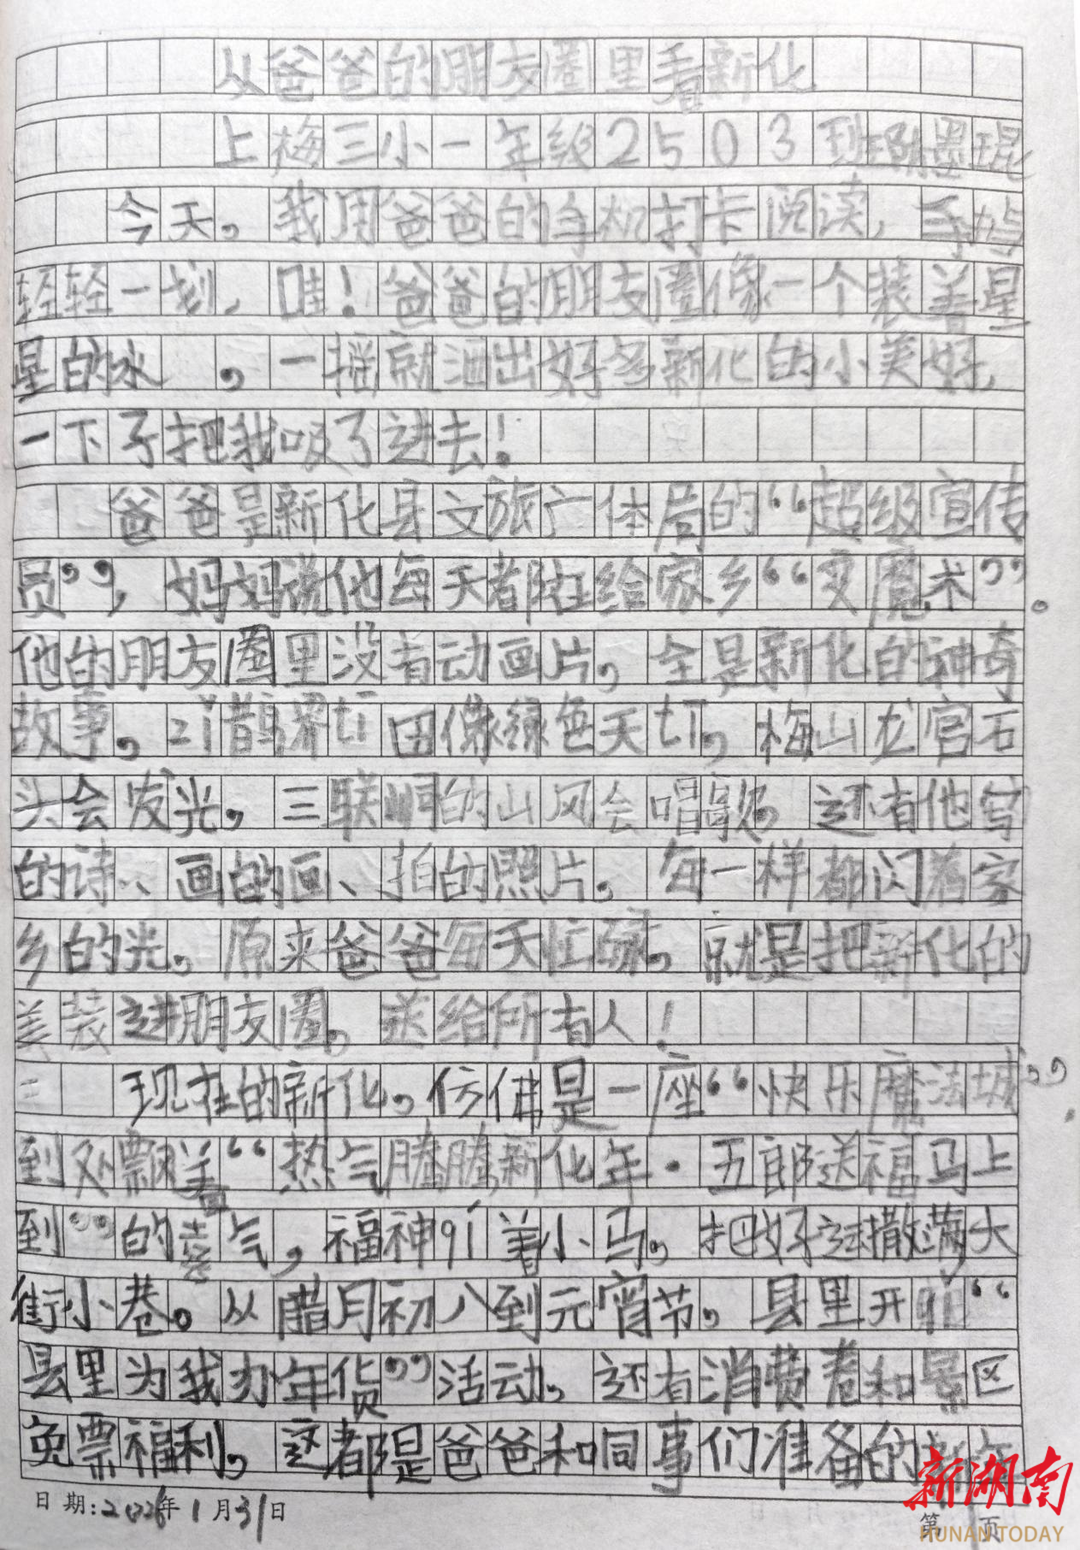 从爸爸的朋友圈里看新化
上梅三小一年级2503班 墨琨
今天。我用爸爸的手机打卡阅读,手指
轻轻一划,哇!爸爸的朋友圈像一个装着星
星的冰 ,一摇就洒出好多新化的小美好,
一下子把我吸了进去!
爸爸是新化县文旅广体局的“超级宣传
员”,妈妈说他每天都在给家乡“变魔术”。
他的朋友圈里没有动画片,全是新化的神奇
故事。zǐ鹊界tī田像绿色天tī,梅山龙宫石
头会发光,三联峒的山风会唱歌,还有他写
的诗、画的画、拍的照片,每一样都闪着家
乡的光。原来爸爸每天忙碌,就是把新化的
美装进朋友圈,送给所有人!
现在的新化,仿佛是一座“快乐魔法城”,
到处飘着“热气腾腾新化年·五郎送福马上
到”的喜气,福神qí着小马,把好运撒满大
街小巷。从腊月初八到元宵节,县里开 “
县里为我办年货”活动,还有消费卷和景区
免票福利,这都是爸爸和同事们准备的新年
日期:2026年1月31日
第 页
新湖南
HUNAN TODAY